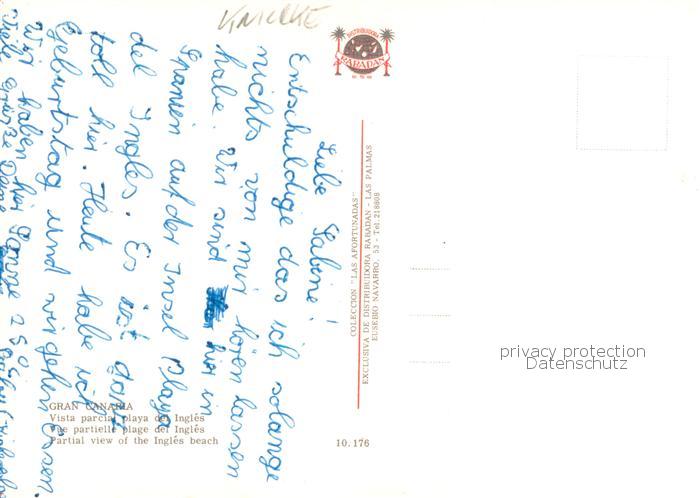 KNICKE
DISTRIBUIDORA
RABADAN
Liebe Sabine!
Entschuldige das ich solange
nichts von mir hören lassen
habe. Wir sind hir in
Spanien auf der Insel Playa
del Ingles. Es ist ganz
toll hier. Heute habe ich
Geburtstag und wir gehen Essen.
Wir haben hier Sonne 250
Viele Grüße Deine
COLECCION "LAS AFORTUNADAS"
EXCLUSIVA DE DISTRIBUIDORA RABADAN - LAS PALMAS
EUSEBIO NAVARRO, 53 - Tel. 218808
privacy protection
Datenschutz
GRAN CANARIA
Vista parcial playa del Inglés
Vue partielle plage del Inglés
Partial view of the Inglés beach
10.176